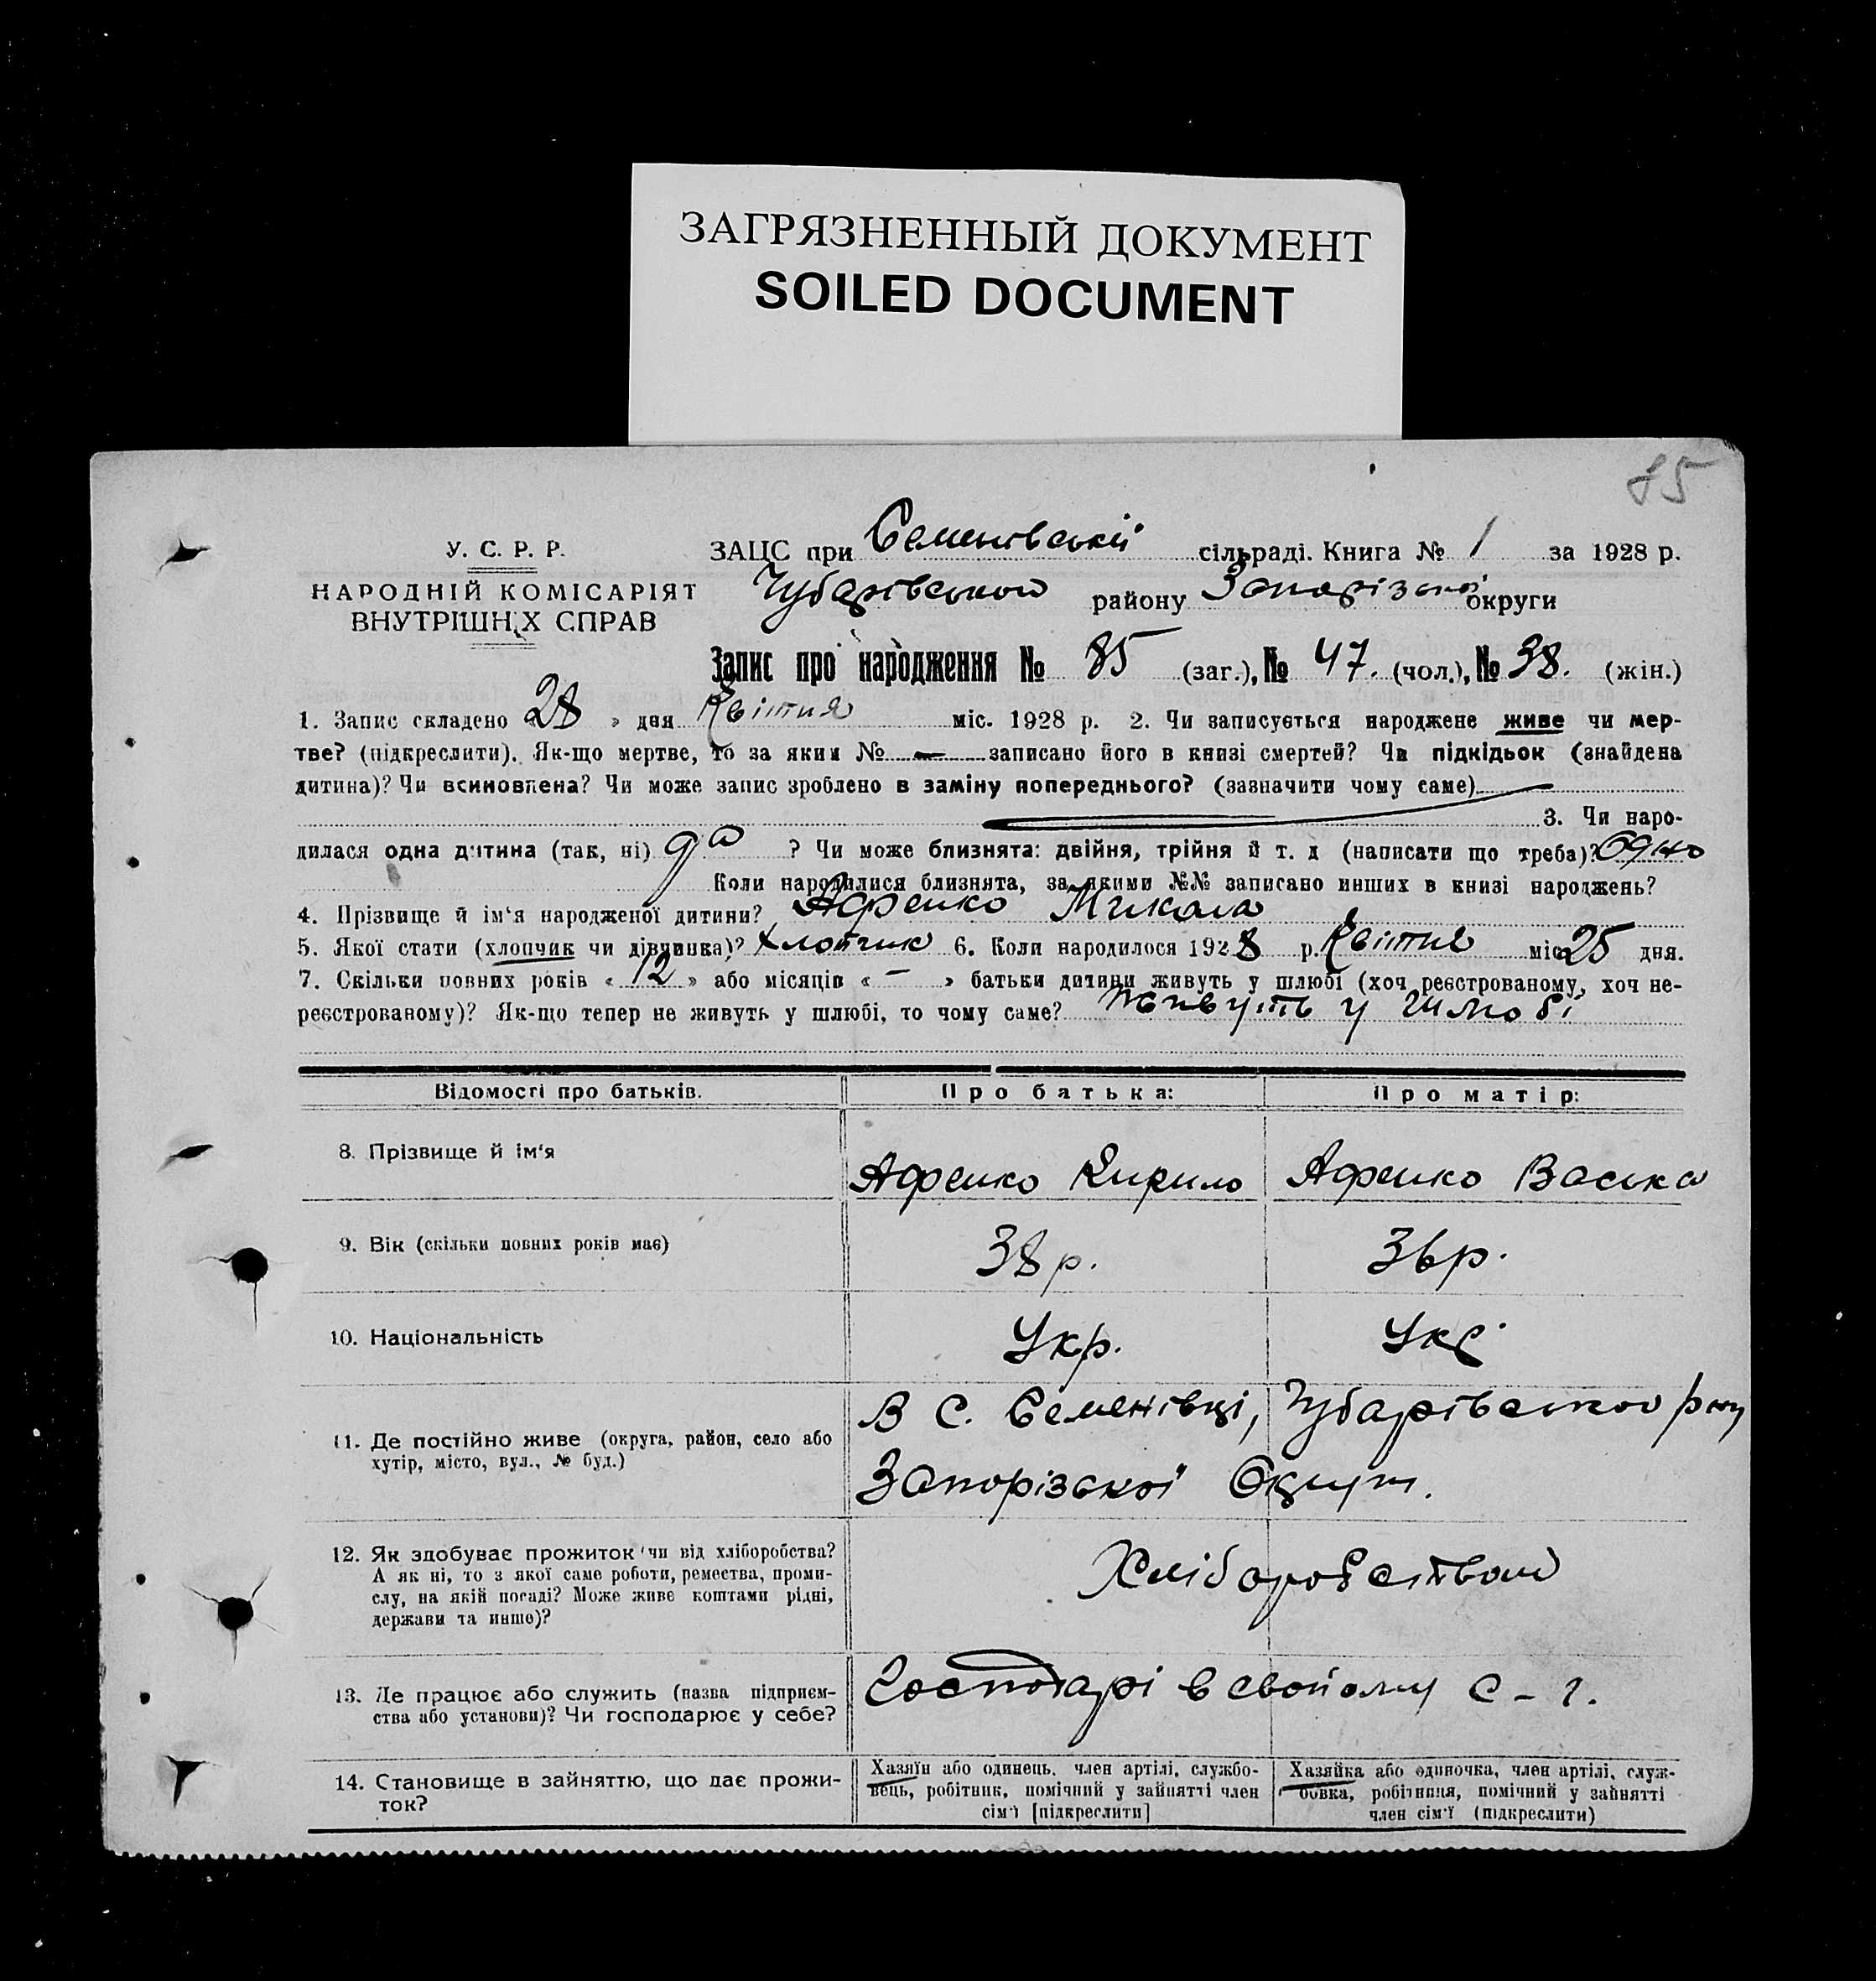 ЗАГРЯЗНЕННЫЙ ДОКУМЕНТ
SOILED DOCUMENT
85
У. С. Р. Р.
НАРОДНІЙ КОМІСАРІЯТ
ВНУТРІШНІХ СПРАВ
ЗАЦС при Семенівській сільраді. Книга № 1 за 1928 р.
Чубарівського району Запорізської округи
Запис про народження № 85 (заг.), № 47. (чол.), № 38. (жін.)
1. Запис складено « 28 » дня Квітня міс. 1928 р. 2. Чи записується народжене живе чи мер-
тве? (підкреслити). Як-що мертве, то за яким № — записано його в книзі смертей? Чи підкідьок (знайдена
дитина)? Чи всиновлена? Чи може запис зроблено в заміну попереднього? (зазначити чому саме)
3. Чи наро-
дилася одна дитина (так, ні) да ? Чи може близнята: двійня, трійня й т. д (написати що треба)? Одно
Коли народилися близнята, за якими №№ записано инших в книзі народжень?
4. Прізвище й ім'я народженої дитини? Афенко Микола
5. Якої стати (хлопчик чи дівчинка)? хлопчик 6. Коли народилося 1928 р. Квітня міс 25 дня.
7. Скільки повних років « 12 » або місяців « — » батьки дитини живуть у шлюбі (хоч реєстрованому, хоч не-
реєстрованому)? Як-що тепер не живуть у шлюбі, то чому саме? живуть у шлюбі
Відомості про батьків. Про батька: Про матір:
8. Прізвище й ім'я Афенко Кирило Афенко Васка
9. Вік (скільки повних років має) 38 р. 36 р.
10. Національність Укр. Укр.
11. Де постійно живе (округа, район, село або
хутір, місто, вул., № буд.)
В С. Семенівці, Чубарівського р-ну
Запорізскої Округи.
12. Як здобуває прожиток чи від хліборобства?
А як ні, то з якої саме роботи, ремества, проми-
слу, на якій посаді? Може живе коштами рідні,
держави та инше)?
Хліборобством
13. Де працює або служить (назва підприєм-
ства або установи)? Чи господарює у себе?
Господарі в свойому с - г.
14. Становище в зайняттю, що дає прожи-
ток?
Хазяїн або одинець, член артілі, службо-
вець, робітник, помічний у зайнятті член
сім'ї [підкреслити]
Хазяйка або одиночка, член артілі, служ-
бовка, робітниця, помічний у зайнятті
член сім'ї (підкреслити)